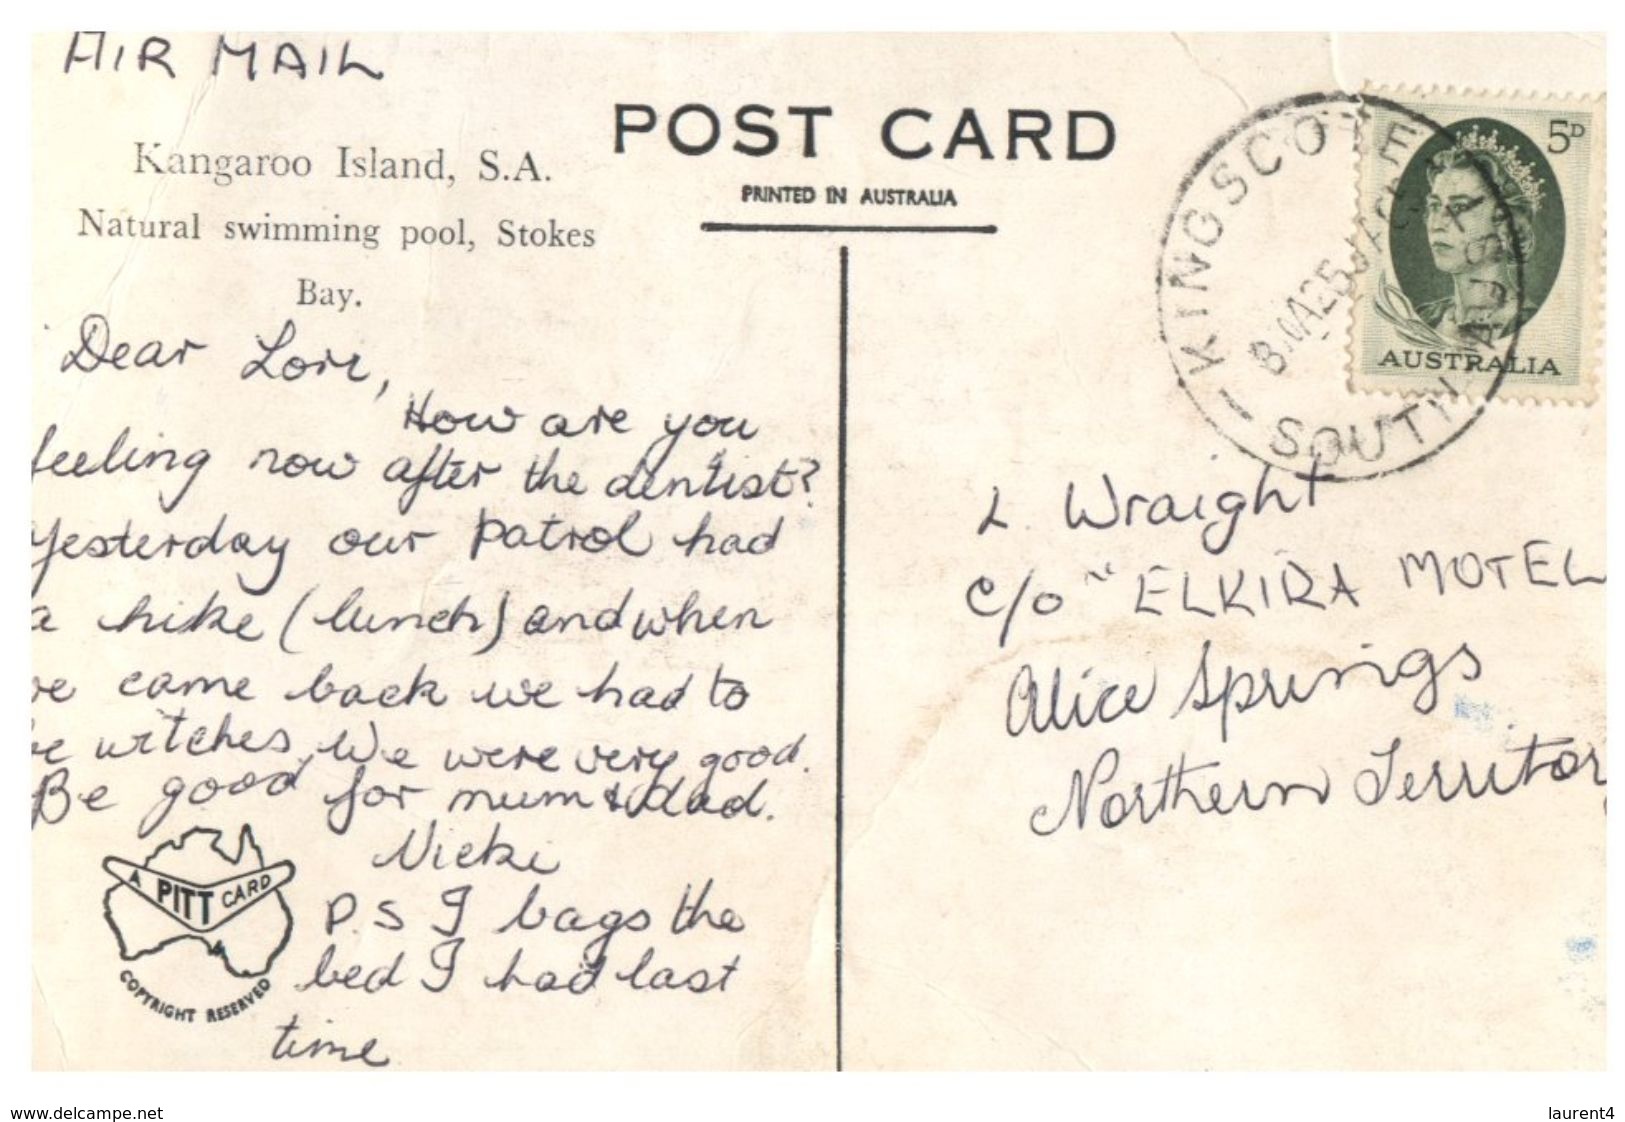 AIR MAIL
Kangaroo Island, S.A.
Natural swimming pool, Stokes
Bay.
POST CARD
PRINTED IN AUSTRALIA
Dear Lori,
How are you
feeling now after the dentist?
Yesterday our patrol had
a hike (lunch) and when
we came back we had to
be witches. We were very good.
Be good for mum & dad.
Nicki
P.S I bags the
bed I had last
time
A PITT CARD
COPYRIGHT RESERVED
KINGSCOTE
SOUTH AUSTRALIA
5D
AUSTRALIA
L. Wraight
c/o "ELKIRA MOTEL
Alice Springs
Northern Territory
www.delcampe.net
laurent4